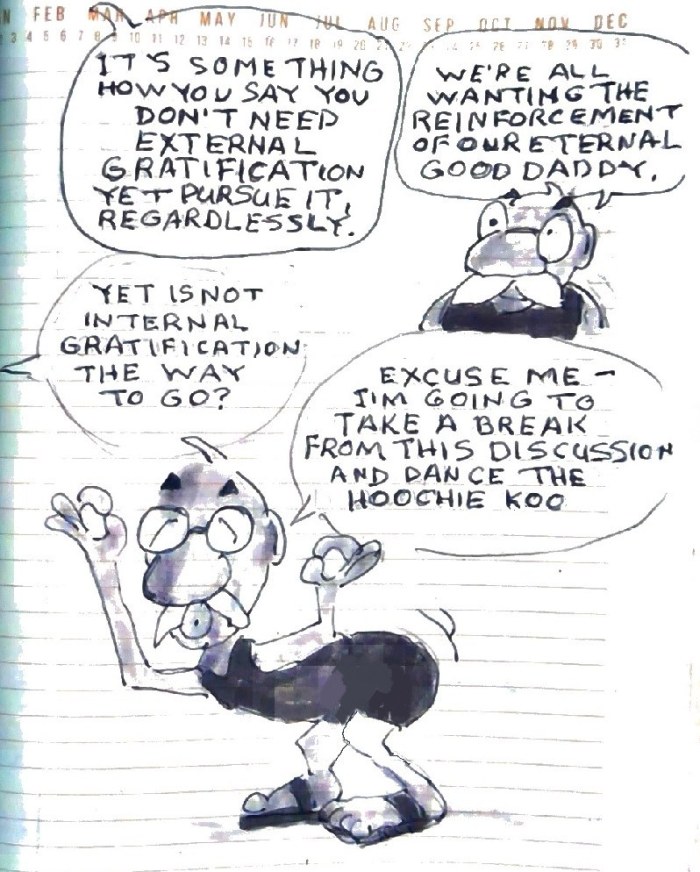 FEB MAR APR MAY JUN JUL AUG SEP OCT NOV DEC
3 4 5 6 7 8 9 10 11 12 13 14 15 16 17 18 19 20 26 27 28 29 30 31
IT'S SOMETHING
HOW YOU SAY YOU
DON'T NEED
EXTERNAL
GRATIFICATION
YET PURSUE IT,
REGARDLESSLY.
WE'RE ALL
WANTING THE
REINFORCEMENT
OF OUR ETERNAL
GOOD DADDY.
YET IS NOT
INTERNAL
GRATIFICATION
THE WAY
TO GO?
EXCUSE ME –
I'M GOING TO
TAKE A BREAK
FROM THIS DISCUSSION
AND DANCE THE
HOOCHIE KOO